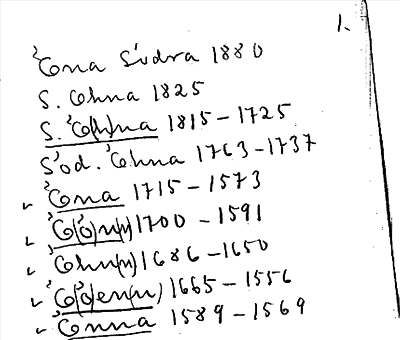 1.
'Cona Súdra 1880
S. Cohna 1825
S. 'Co(h)na 1815-1725
S'od. 'Cohna 1763-1737
✓ 'Cona 1715-1573
✓ 'C(o)n(n) 1700-1591
✓ 'Cohn(n) 1686-1650
✓ 'C(o)en(n) 1665-1556
✓ 'Conna 1589-1569